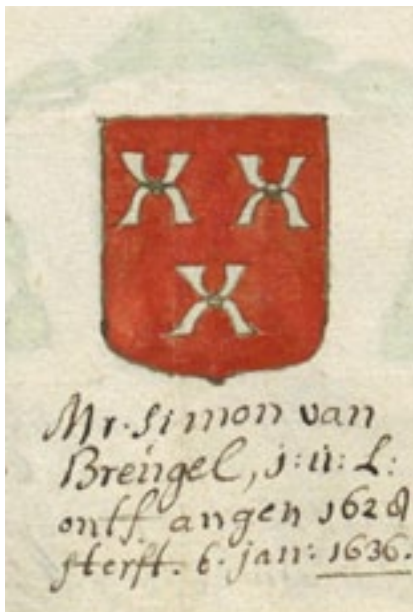 Mr. Simon van
Breugel, j: u: L:
ontfangen 1628
sterft. 6. jan: 1636.